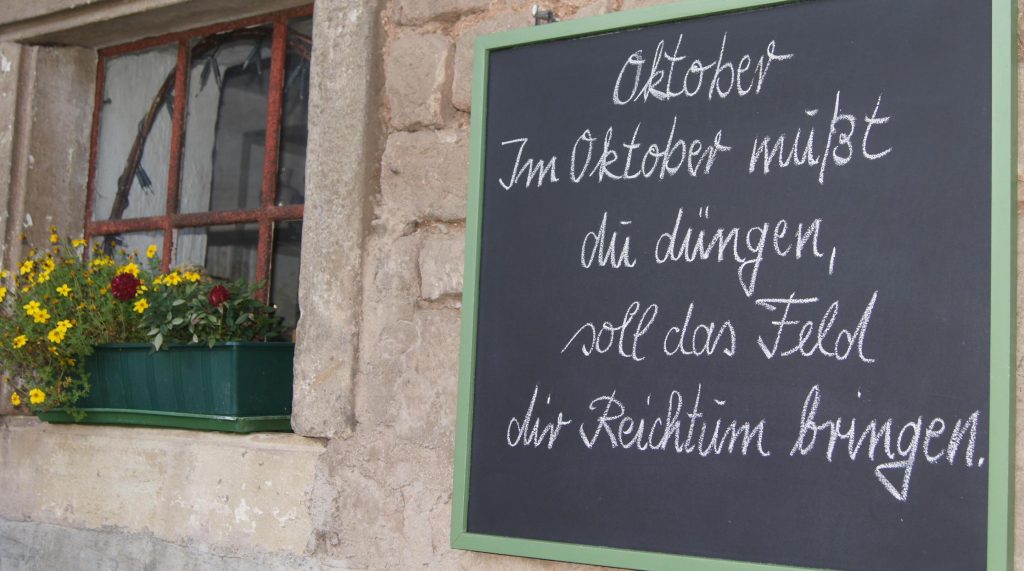 Oktober
Im Oktober mußt
du düngen,
soll das Feld
dir Reichtum bringen.